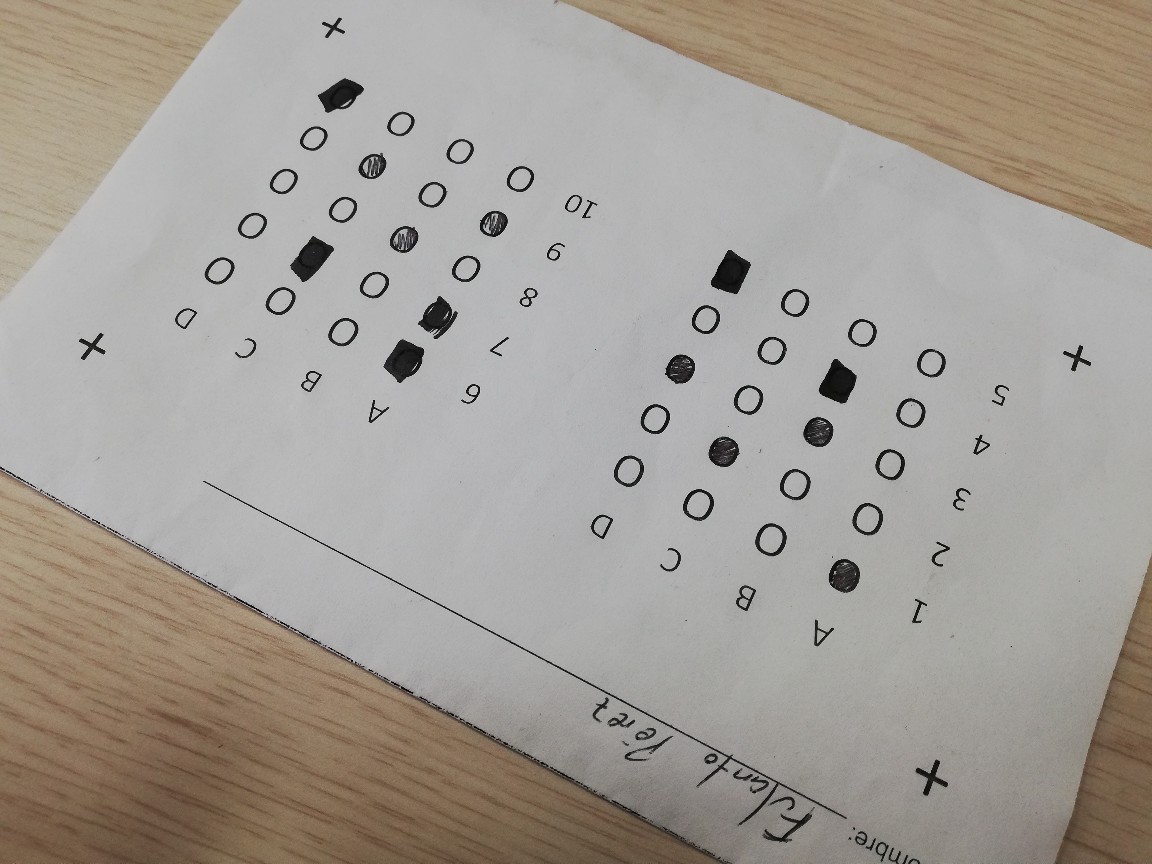 ombre: Fulanto Pérez
A B C D
1
2
3
4
5
A B C D
6
7
8
9
10